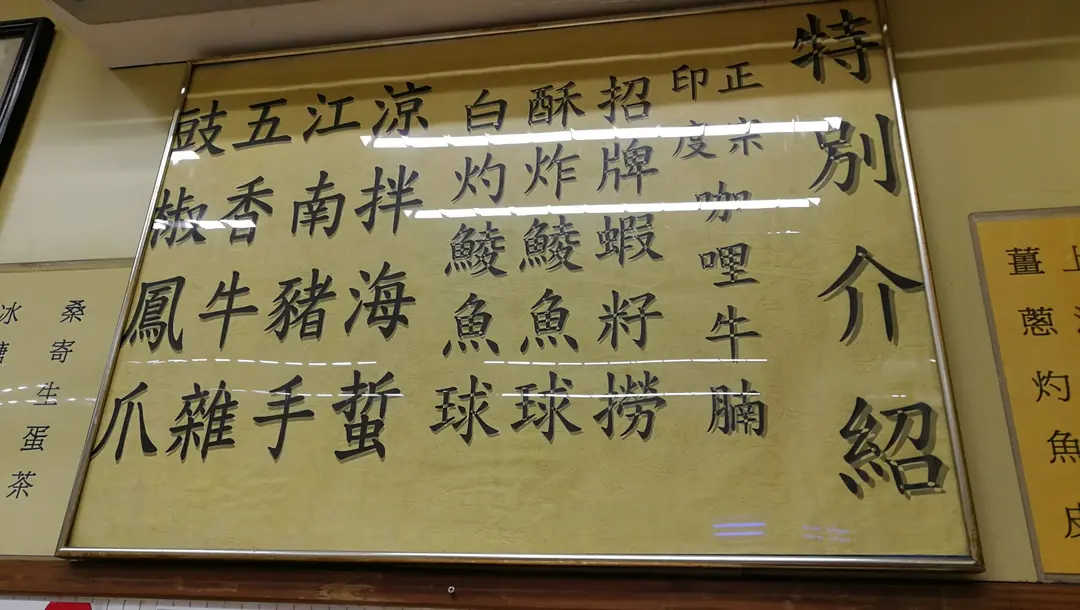 薑蔥灼魚皮
特別介紹
正宗
印度
咖哩牛腩
招牌蝦籽撈
酥炸鯪魚球
白灼鯪魚球
涼拌海蜇
江南豬手
五香牛雜
豉椒鳳爪
桑寄生蛋茶